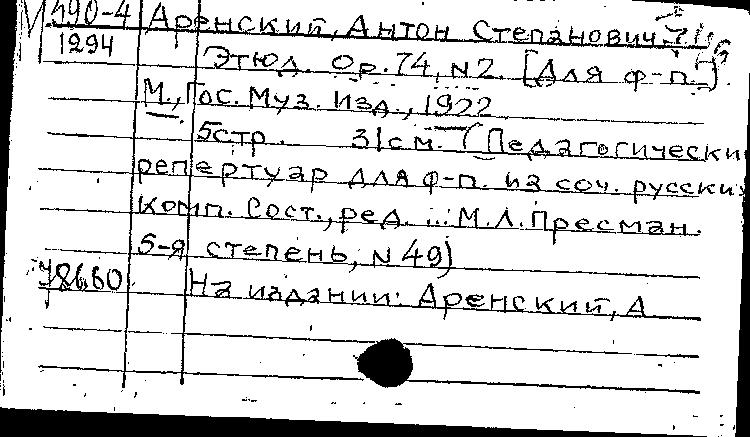 М 590-4 Аренский, Антон Степанович
1294 Этюд. Ор. 74, N2. [Для ф-п.]
М., Гос. Муз. Изд., 1922
5стр. 31см. (Педагогически
репертуар для ф-п. из соч. русских
комп. Сост., ред. ... М.Л. Пресман.
5-я степень, N 49)
78660 На издании: Аренский, А